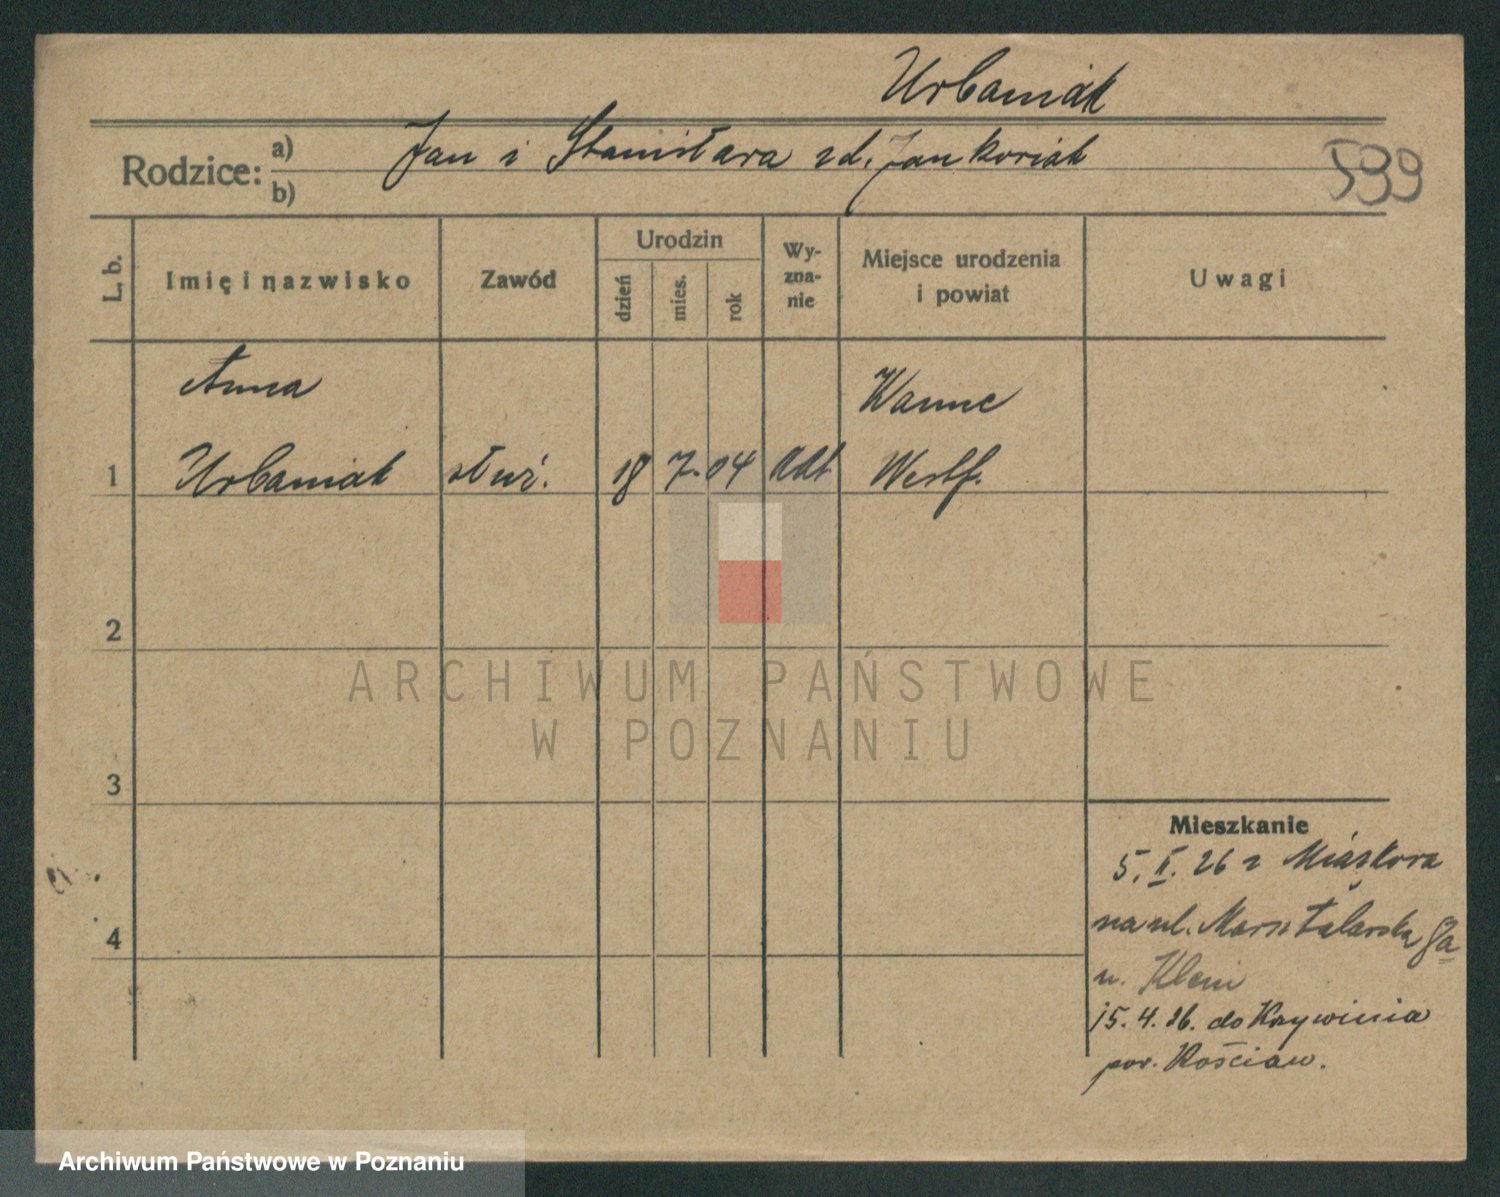 Urbaniak
Rodzice: a) b)
Jan i Stanisława zd. Jankowiak
599
L. b.
Imię i nazwisko
Zawód
Urodzin
dzień
mies.
rok
Wy-
zna-
nie
Miejsce urodzenia
i powiat
Uwagi
Anna
Wanne
1 Urbaniak służ. 18 7. 04 Westf.
2
3
4
Mieszkanie
5. II. 26 z
na ul. Marsztalarska 8a
u. Klein
15. 4. 26. do Krzywinia
pow. Kościan.
ARCHIWUM PAŃSTWOWE
W POZNANIU
Archiwum Państwowe w Poznaniu